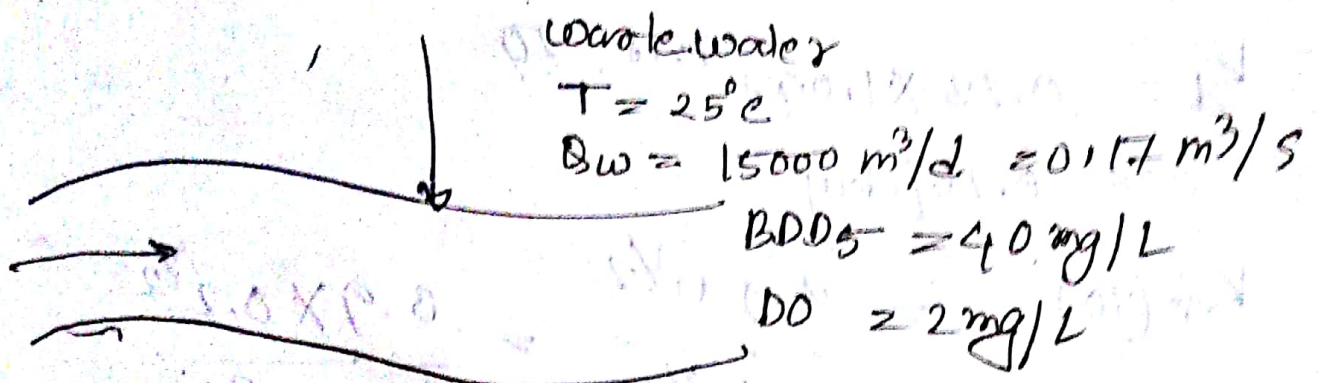 wastewater
T = 25°C
Qw = 15000 m³/d = 0.17 m³/s
BOD5 = 40 mg/L
DO = 2 mg/L